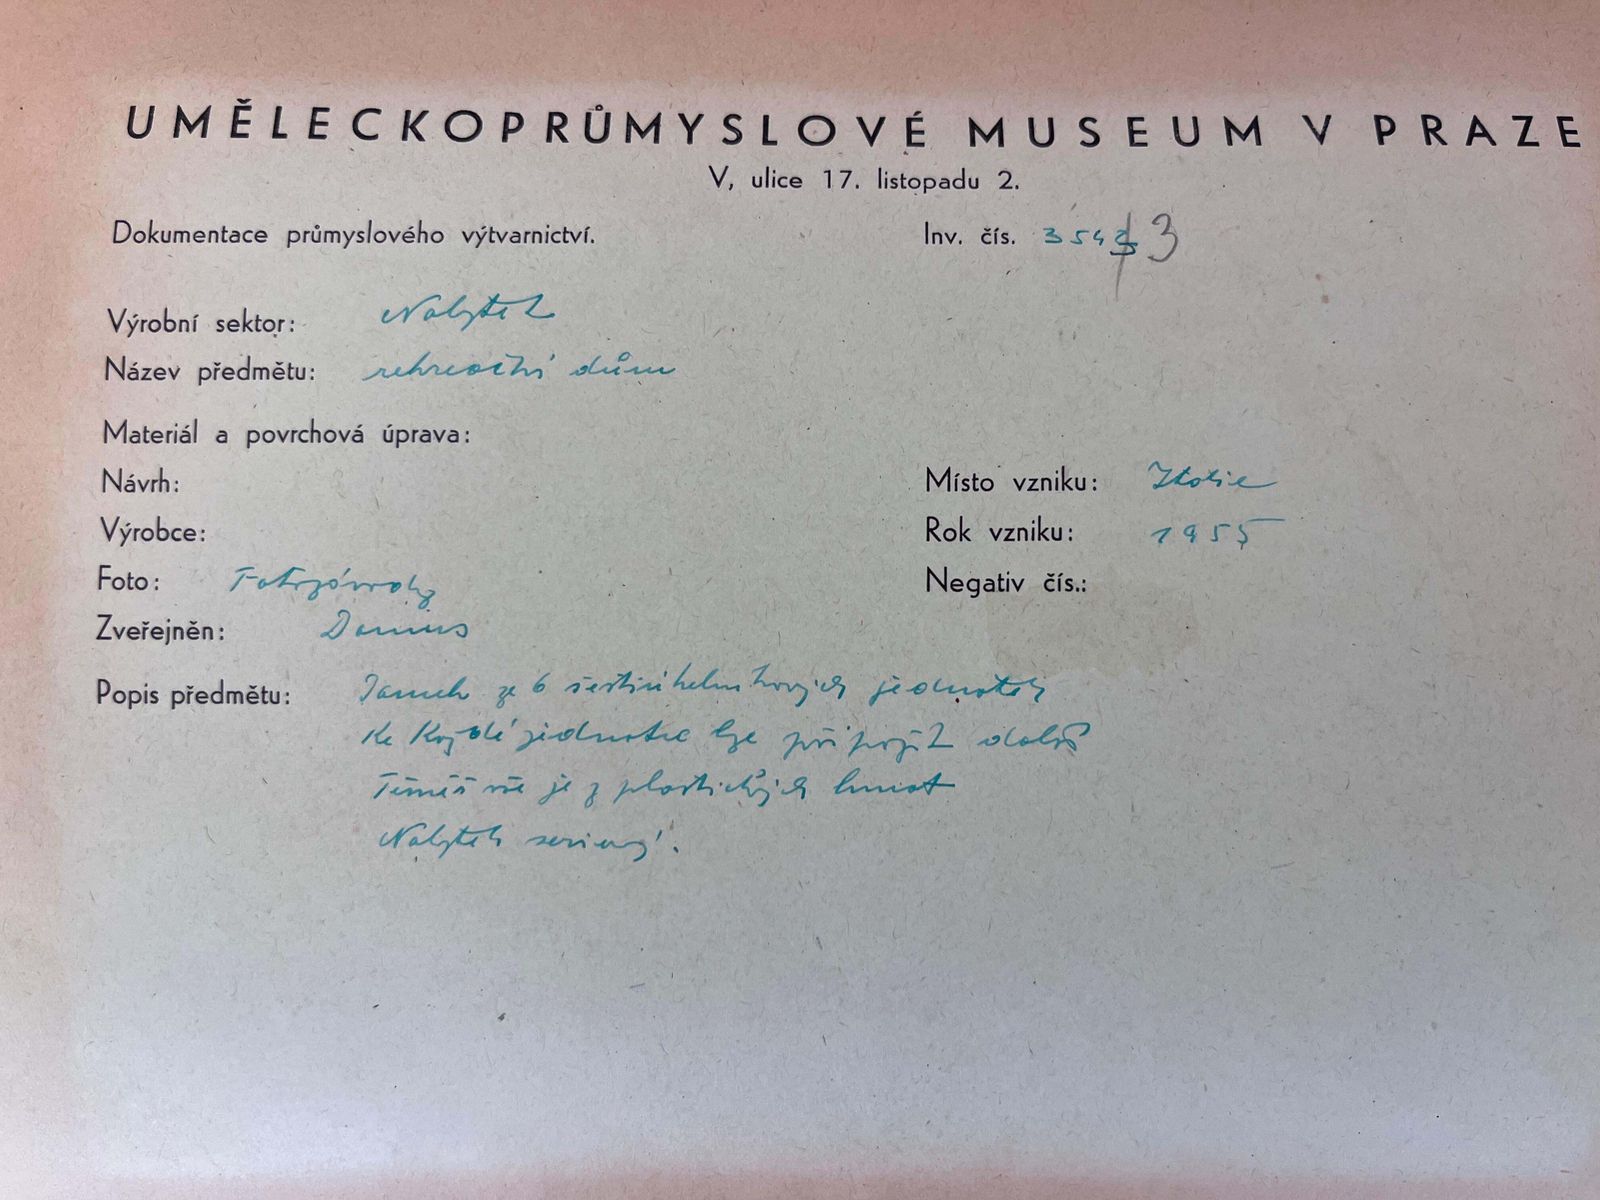 UMĚLECKOPRŮMYSLOVÉ MUSEUM V PRAZE
V, ulice 17. listopadu 2.
Dokumentace průmyslového výtvarnictví. Inv. čís. 354 3
Výrobní sektor: Nábytek
Název předmětu: rekreační dům
Materiál a povrchová úprava:
Návrh: Místo vzniku: Itálie
Výrobce: Rok vzniku: 1955
Foto: Negativ čís.:
Zveřejněn: Domus
Popis předmětu: ze 6 šestiúhelníkových jednotek
Ke každé jednotce lze připojit další
Téměř vše je z plastických hmot
Nábytek seriový.